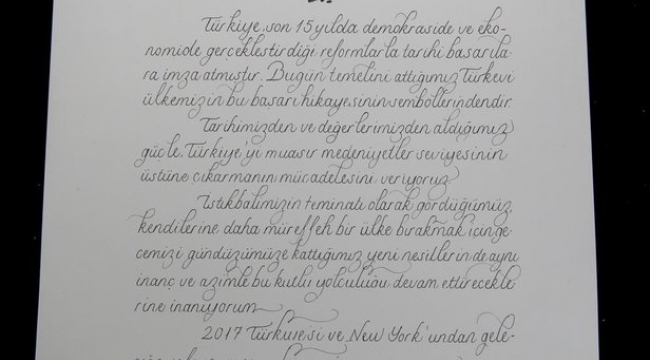 Türkiye, son 15 yılda demokraside ve eko-
nomide gerçekleştirdiği reformlarla tarihi başarıla-
ra imza atmıştır. Bugün temelini attığımız Türkevi
ülkemizin bu başarı hikayesinin sembollerindendir.
Tarihimizden ve değerlerimizden aldığımız
güçle, Türkiye'yi muasır medeniyetler seviyesinin
üstüne çıkarmanın mücadelesini veriyoruz.
İstikbalimizin teminatı olarak gördüğümüz,
kendilerine daha müreffeh bir ülke bırakmak için ge-
cemizi gündüzümüze kattığımız yeni nesillerin de aynı
inanç ve azimle bu kutlu yolculuğu devam ettirecekle
rine inanıyorum
2017 Türkiyesi ve New York'undan gele-